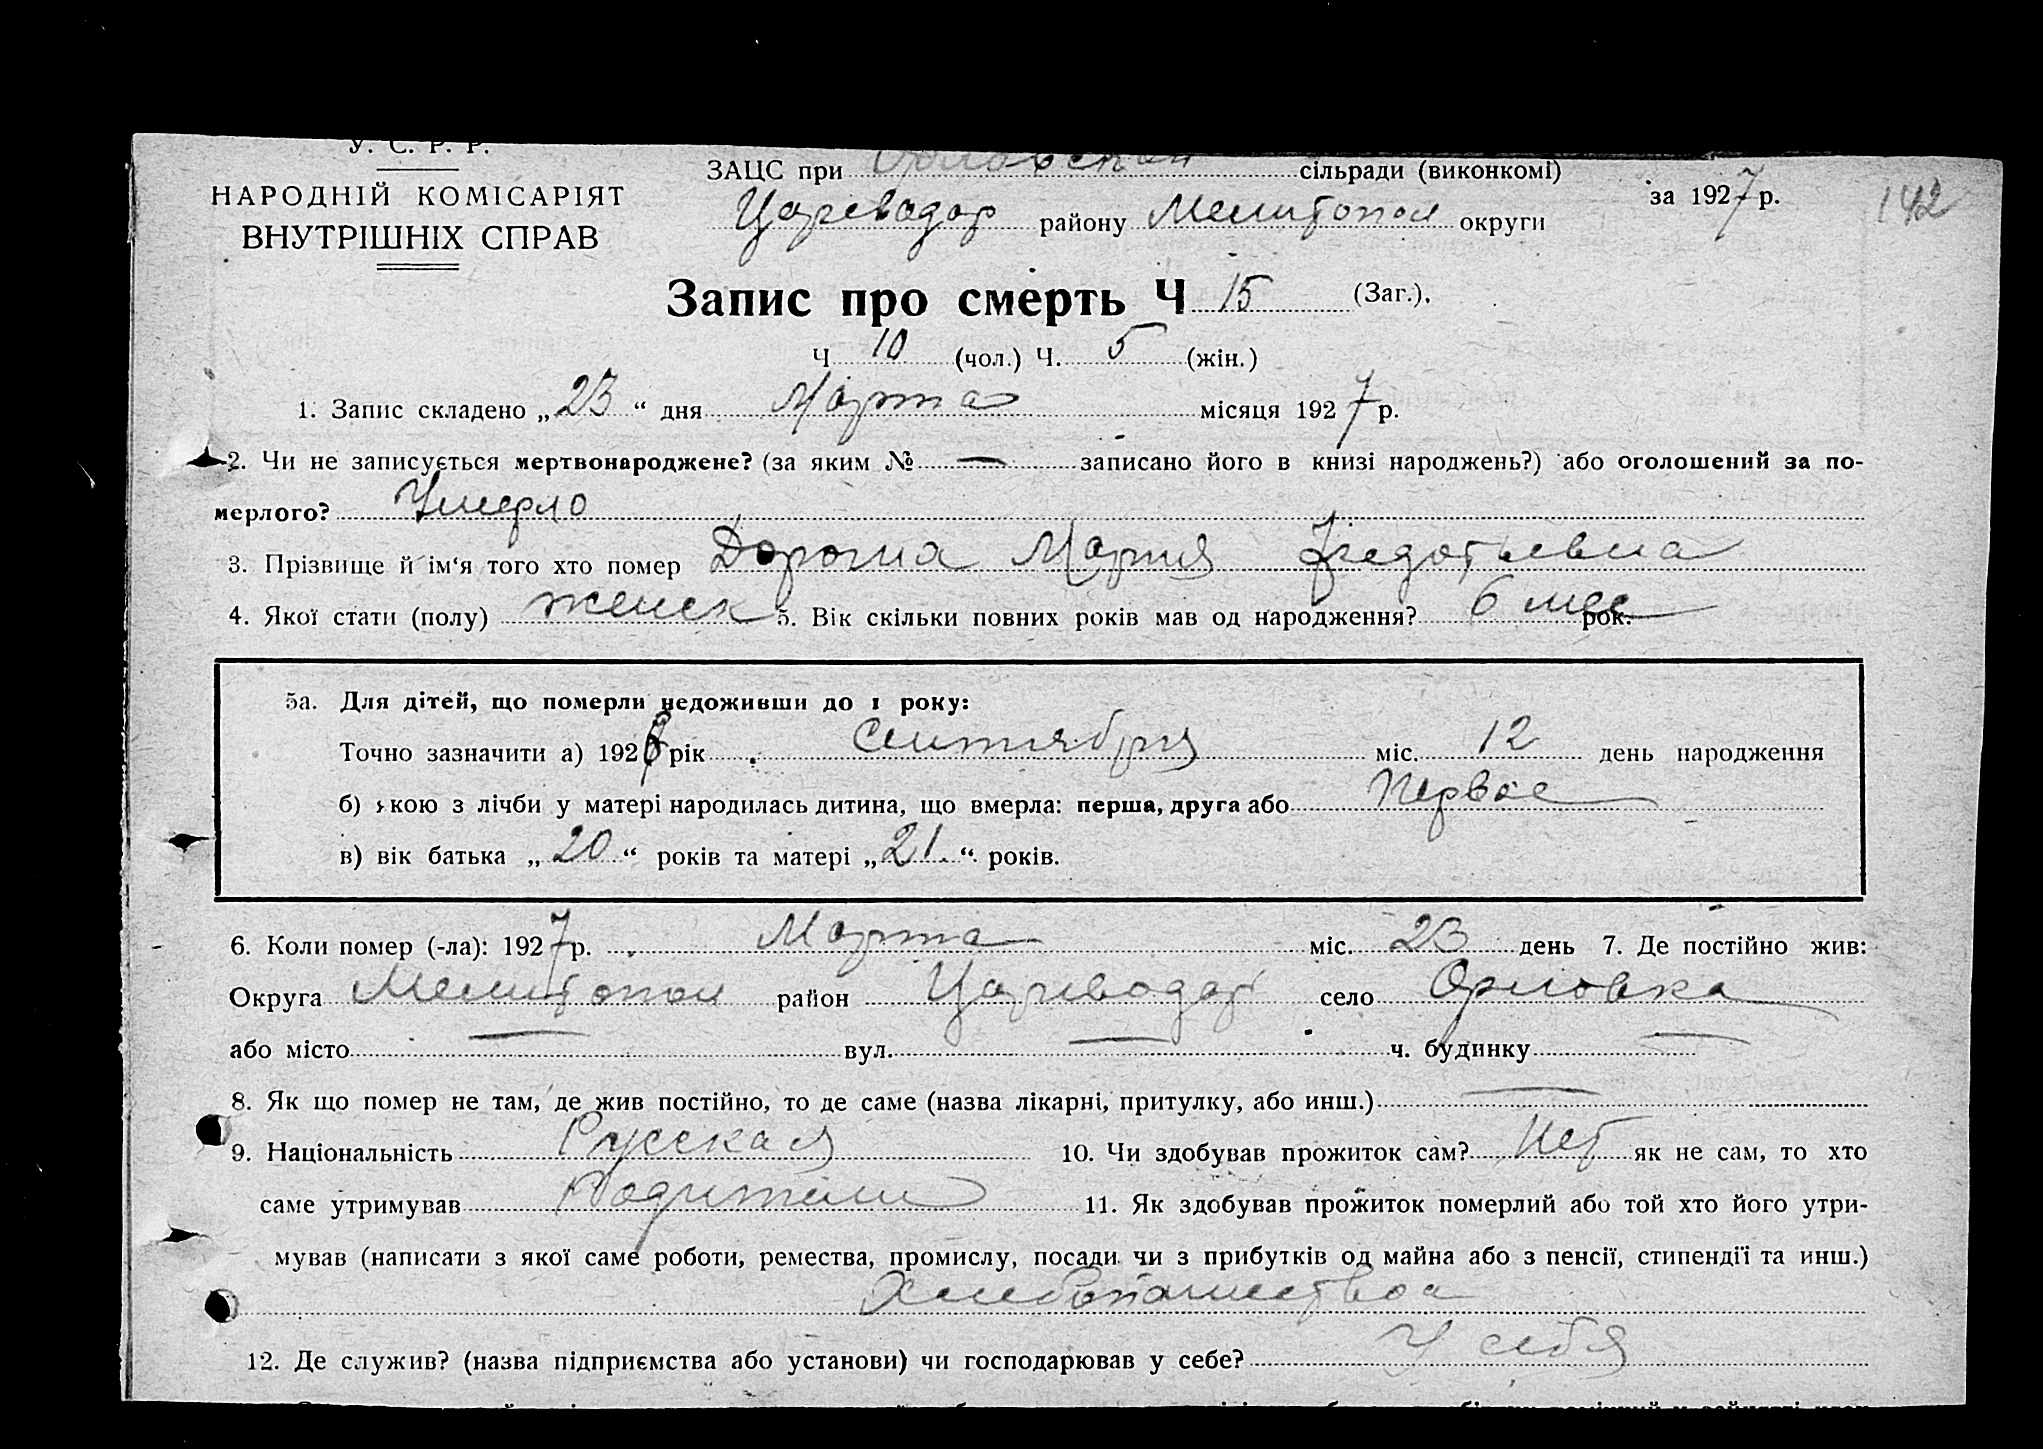 У. С. Р. Р.
НАРОДНІЙ КОМІСАРІЯТ
ВНУТРІШНІХ СПРАВ
ЗАЦС при Орловской сільради (виконкомі)
Цареводар району Мелитопол округи
за 1927 р.
142
Запис про смерть Ч 15 (Заг.).
Ч 10 (чол.) Ч. 5 (жін.)
1. Запис складено „23“ дня Марта місяця 1927 р.
2. Чи не записується мертвонароджене? (за яким № — записано його в книзі народжень?) або оголошений за по-
мерлого? Умерло
3. Прізвище й ім‘я того хто помер Мария Федотьевна
4. Якої стати (полу) женск 5. Вік скільки повних років мав од народження? 6 мес рок.
5а. Для дітей, що померли недоживши до 1 року:
Точно зазначити а) 1926 рік Сентября міс. 12 день народження
б) якою з лічби у матері народилась дитина, що вмерла: перша, друга або Первое
в) вік батька „20“ років та матері „21.“ років.
6. Коли помер (-ла): 1927 р. Марта міс. 23 день 7. Де постійно жив:
Округа Мелитопол район Цареводар село Орловка
або місто — вул. — ч. будинку —
8. Як що помер не там, де жив постійно, то де саме (назва лікарні, притулку, або инш.) —
9. Національність Русская 10. Чи здобував прожиток сам? Нет як не сам, то хто
саме утримував Родители 11. Як здобував прожиток померлий або той хто його утри-
мував (написати з якої саме роботи, ремества, промислу, посади чи з прибутків од майна або з пенсії, стипендії та инш.)
Хлебопашества
12. Де служив? (назва підприємства або установи) чи господарював у себе? У себя